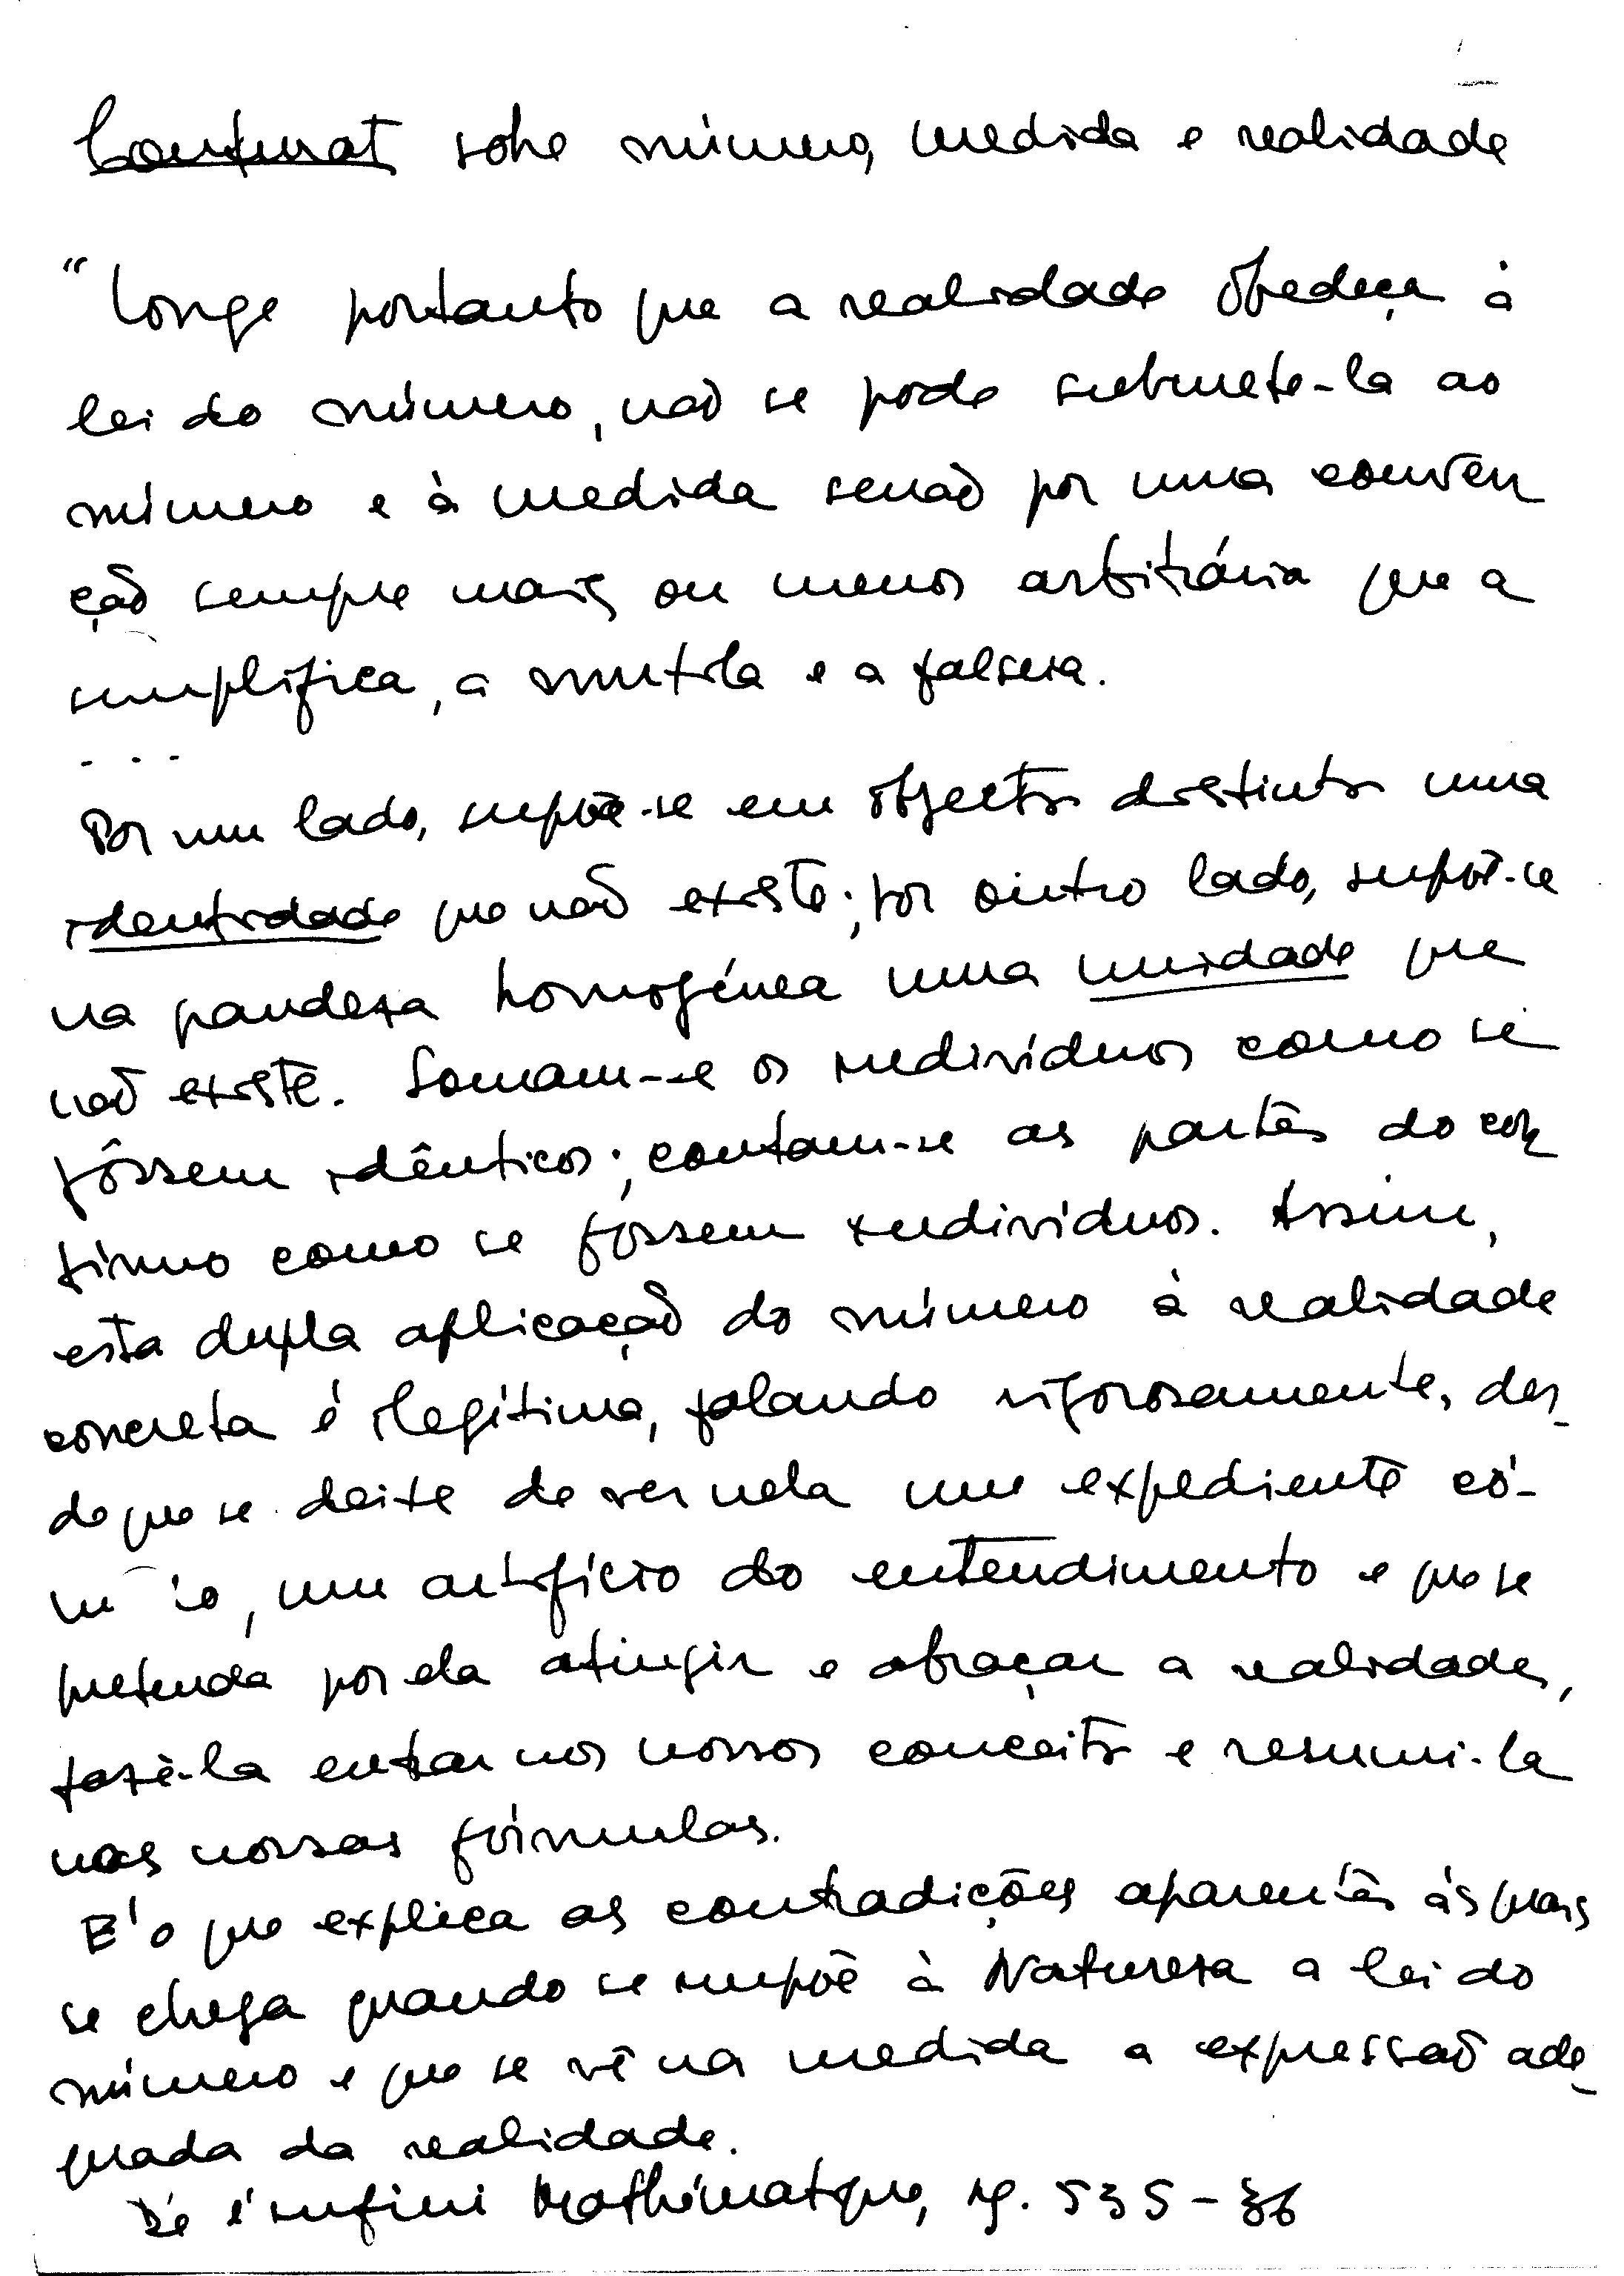 Couturat sobre número, medida e realidade
"Longe portanto que a realidade obedeça à
lei do número, não se pode submete-la ao
número e à medida senão por uma conven
ção sempre mais ou menos arbitrária que a
simplifica, a mutila e a falseia.
...
Por um lado, supõe-se em objectos distintos uma
identidade que não existe; por outro lado, supõe-se
na grandeza homogénea uma unidade que
não existe. Somam-se os indivíduos como se
fôssem idênticos; contam-se as partes do con
tínuo como se fossem indivíduos. Assim,
esta dupla aplicação do número à realidade
concreta é ilegítima, falando rigorosamente, des-
de que se deixe de ver nela um expediente có-
modo, um artifício do entendimento e que se
pretenda por ela atingir e abraçar a realidade,
fazê-la entrar nos nossos conceitos e resumi-la
nas nossas fórmulas.
E' o que explica as contradições aparentes às quais
se chega quando se impõe à Natureza a lei do
número e que se vê na medida a expressão ade-
quada da realidade.
De l'infini Mathématique, pg. 535-36